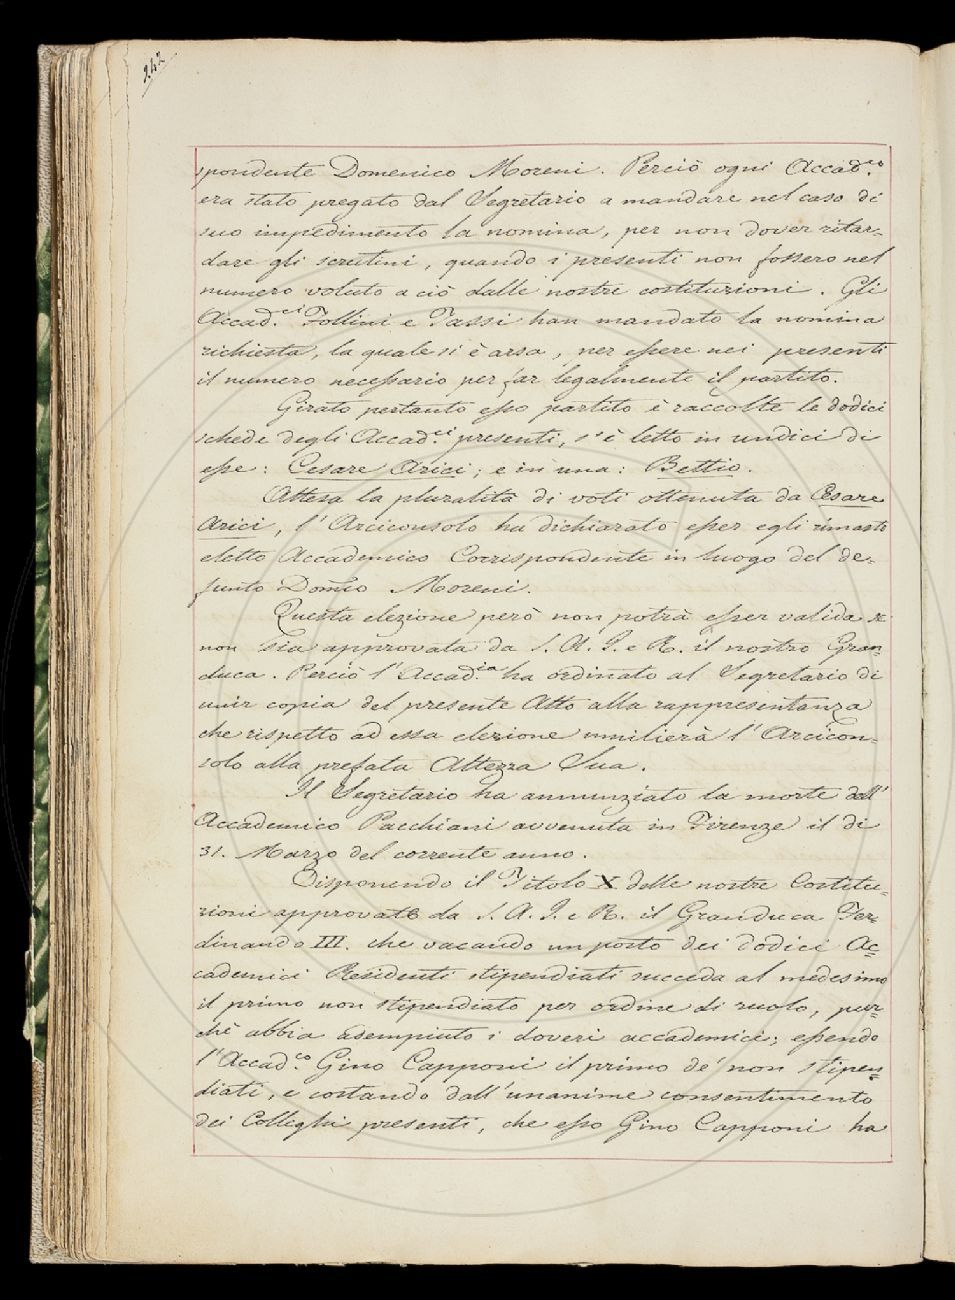 242
spondente Domenico Moreni. Perciò ogni Accad.co
era stato pregato dal Segretario a mandare nel caso di
suo impedimento la nomina, per non dover ritar=
dare gli scrutini, quando i presenti non fossero nel
numero voluto a ciò dalle nostre costituzioni. Gli
Accad.ci Follini e Tassi han mandato la nomina
richiesta, la quale si è arsa, per essere nei presenti
il numero necessario per far legalmente il partito.
Girato pertanto esso partito è raccolte le dodici
schede degli Accad.ci presenti, s'è letto in undici di
esse: Cesare Arici; e in una: Bettio.
Attesa la pluralità di voti ottenuta da Cesare
Arici, l'Arciconsolo ha dichiarato esser egli rimasto
eletto Accademico Corrispondente in luogo del de=
funto Dom.co Moreni.
Questa elezione però non potrà esser valida se
non sia approvata da S. A. I. e R. il nostro Gran=
duca. Perciò l'Accad.ia ha ordinato al Segretario di
unir copia del presente Atto alla rappresentanza
che rispetto ad essa elezione umilierà l'Arcicon=
solo alla prefata Altezza Sua.
Il Segretario ha annunziato la morte dell'
Accademico Pacchiani avvenuta in Firenze il di
31. Marzo del corrente anno.
Disponendo il Titolo X delle nostre Costitu=
zioni approvate da S. A. I. e R. il Granduca Fer=
dinando III. che vacando un posto dei dodici Ac=
cademici Residenti stipendiati succeda al medesimo
il primo non stipendiato per ordine di ruolo, pur=
chè abbia adempiuto i doveri accademici; essendo
l'Accad.co Gino Capponi il primo de' non stipen=
diati, e costando dall'unanime consentimento
dei Colleghi presenti, che esso Gino Capponi ha